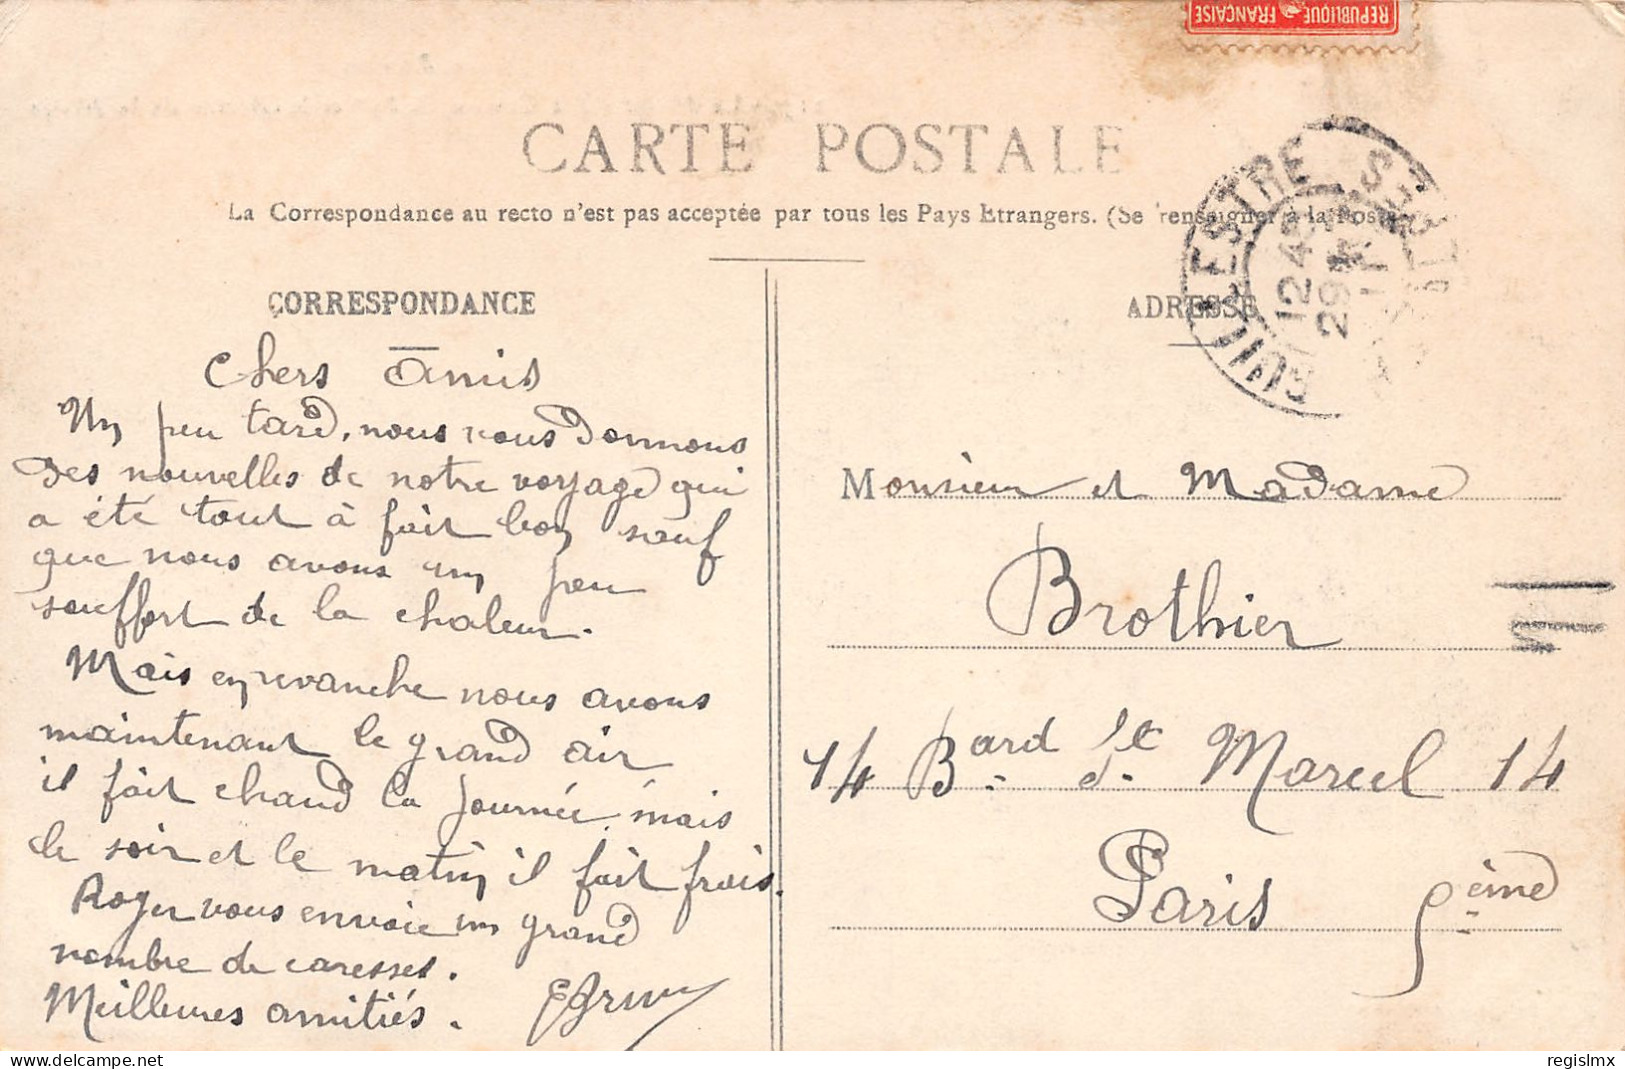 REPUBLIQUE FRANÇAISE
CARTE POSTALE
La Correspondance au recto n'est pas acceptée par tous les Pays Etrangers. (Se renseigner à la Poste
CORRESPONDANCE
Chers Amis
Un peu tard, nous vous donnons
des nouvelles de notre voyage qui
a été tout à fait bon sauf
que nous avons un peu
souffert de la chaleur.
Mais en revanche nous avons
maintenant le grand air
il fait chaud la journée, mais
le soir et le matin il fait frais.
Roger vous envoie un grand
nombre de caresses.
Meilleures amitiés.
ADRESSE
12 4
29
Monsieur et Madame
Brothier
14 Bard St Marcel 14
Paris 5ème
regislmx
delcampe.net